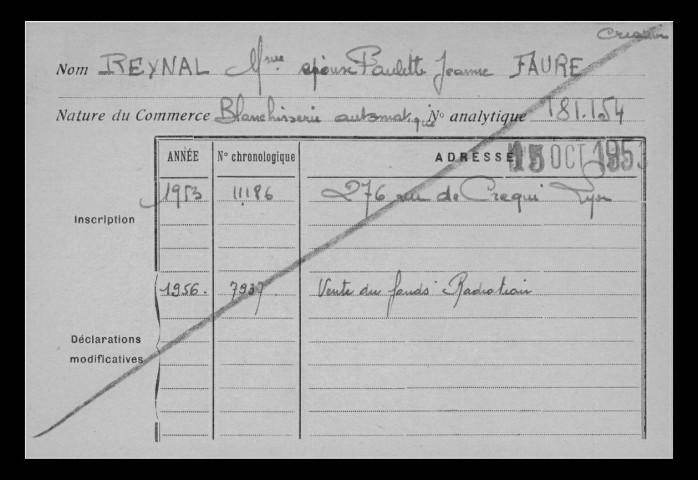 Creation
Nom REYNAL Mme épouse Paulette Jeanne FAURE
Nature du Commerce Blanchisserie automatique N° analytique 181.154
15 OCT 1953
ANNÉE N° chronologique ADRESSE
Inscription 1953 11186 276 rue de Crequi Lyon
1956. 7937 Vente du fonds Radiation
Déclarations
modificatives